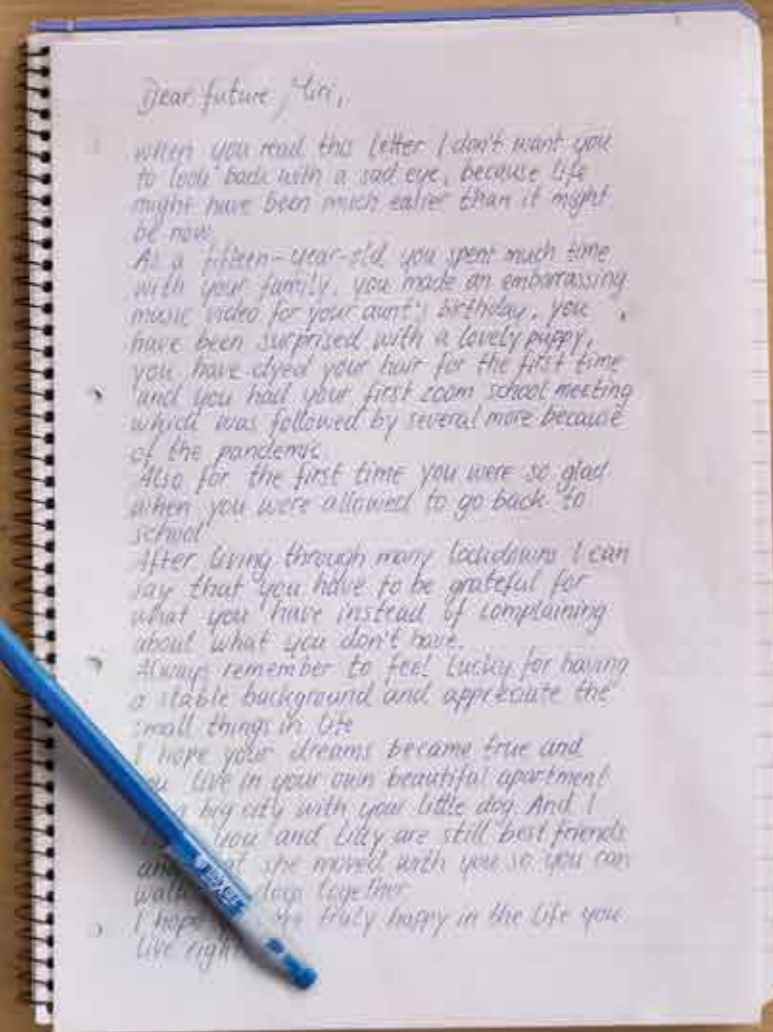 Dear future Miri,
when you read this letter I don't want you
to look back with a sad eye, because life
might have been much ealier than it might
be now.
As a fifteen-year-old you spent much time
with your family, you made an embarrassing
music video for your aunt's birthday, you
have been surprised with a lovely puppy,
you have dyed your hair for the first time
and you had your first zoom school meeting
which was followed by several more because
of the pandemic.
Also for the first time you were so glad
when you were allowed to go back to
school
After living through many lockdowns I can
say that you have to be grateful for
what you have instead of complaining
about what you don't have.
Always remember to feel lucky for having
a stable background and appreciate the
small things in life
I hope your dreams became true and
live in your own beautiful apartment
big city with your little dog. And I
you and Lilly are still best friends
she moved with you so you can
walk dogs together
I hope truly happy in the life you
live right